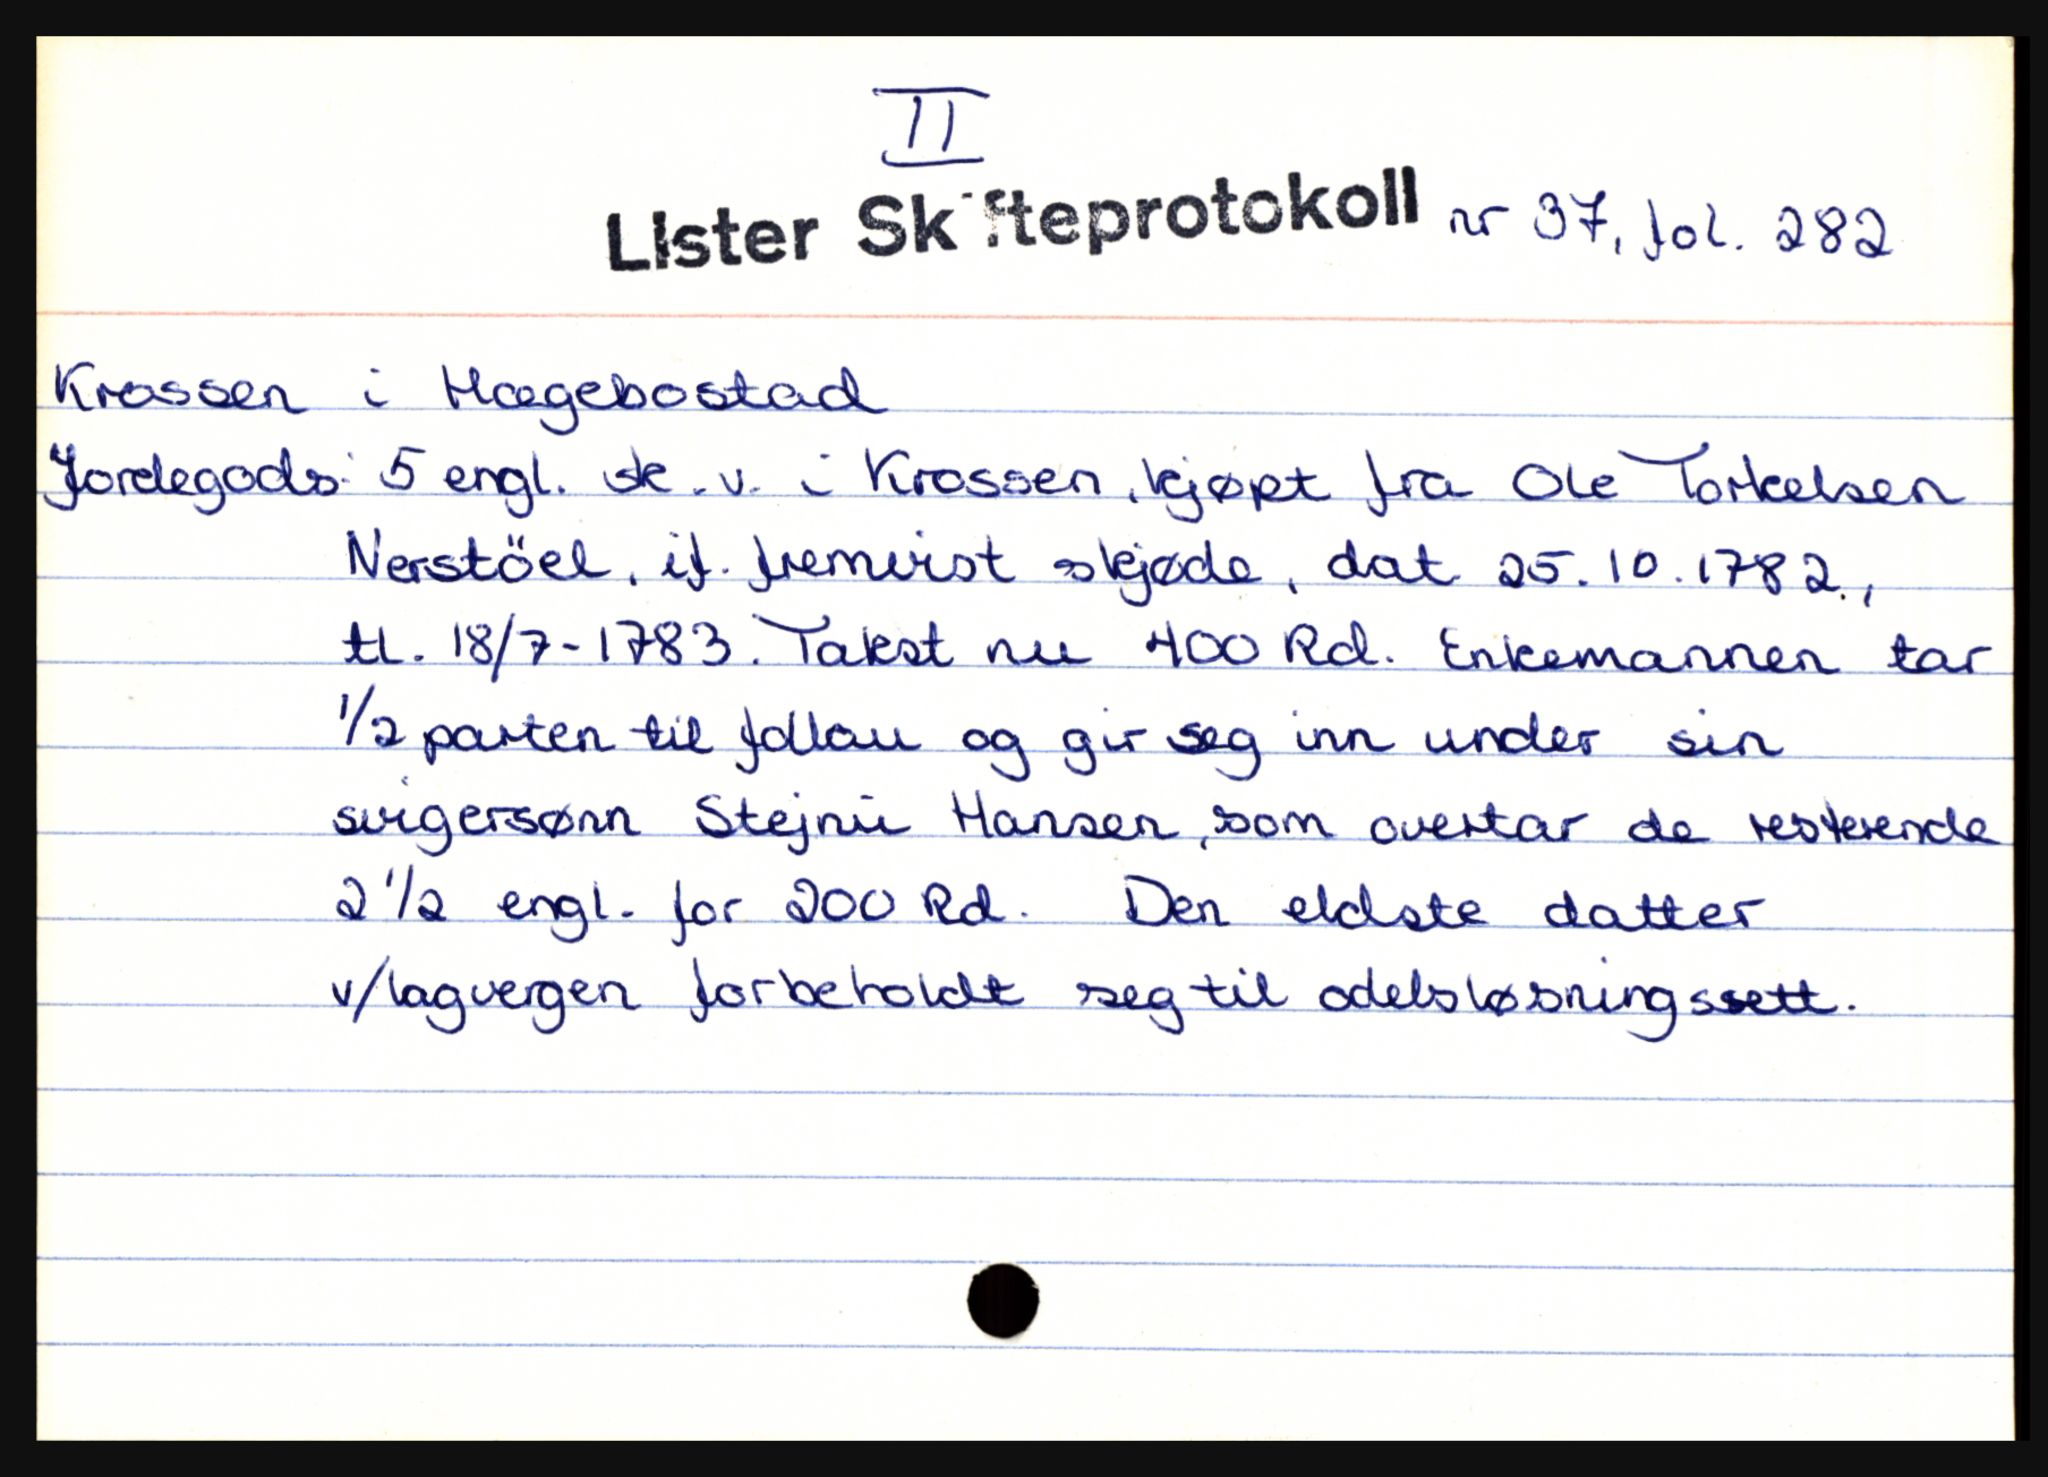 II
Lister Skifteprotokoll nr 37, fol. 282
Krossen i Hægebostad
Jordegods: 5 engl. sk. v. i Krossen, kjøpt fra Ole Torkelsen
Nerstöel, if. fremvist skjøde, dat. 25.10.1782.,
tl. 18/7-1783. Takst nu 400 Rd. Enkemannen tar
1/2 parten til follau og gir seg inn under sin
svigersønn Stejnü Hansen, som overtar de resterende
2 1/2 engl. for 200 Rd. Den eldste datter
v/lagvergen forbeholdt seg til odelsløsningssett.